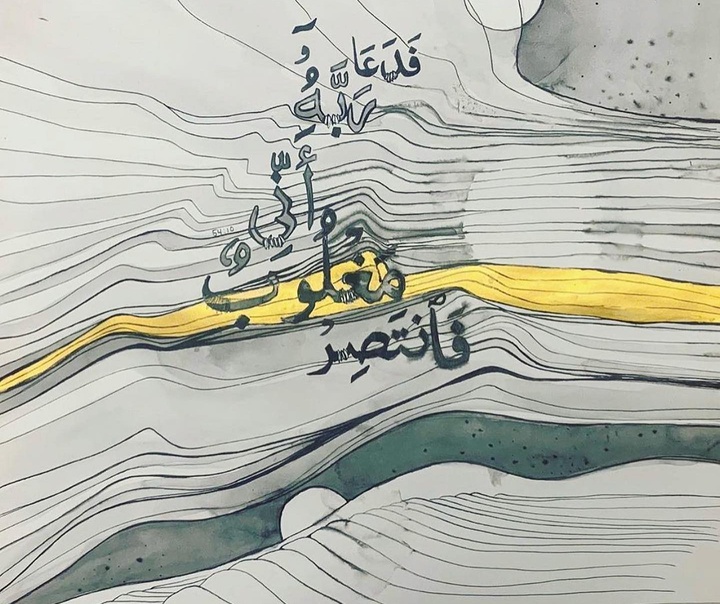 فَدَعَا
رَبَّهُۥٓ
أَنِّى
54:10
مَغْلُوبٌ
فَٱنتَصِرْ